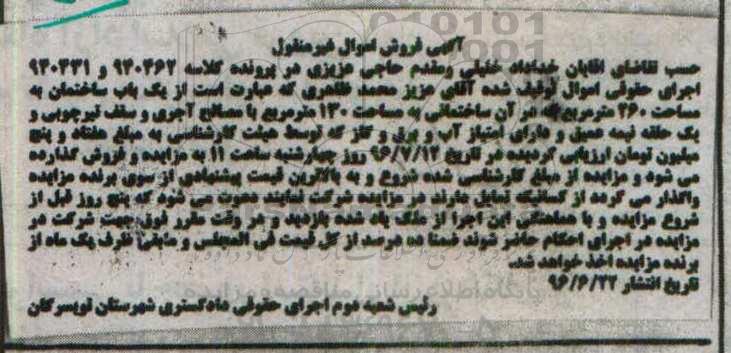 آگهی فروش اموال غیرمنقول
حسب تقاضای آقایان خداداد خلیلی ومقدم حاجی عزیزی در پرونده کلاسه ۹۴۰۴۶۲ و ۹۴۰۴۳۱
اجرای حقوقی اموال توقیف شده آقای عزیز محمد طاهری که عبارت است از یک باب ساختمان به
مساحت ۲۶۰ مترمربع که در آن ساختمانی به مساحت ۱۳۰ مترمربع با مصالح آجری و سقف تیرچوبی و
یک حلقه نیمه عمیق و دارای امتیاز آب و برق و گاز که توسط هیئت کارشناسی به مبلغ هفتاد و پنج
میلیون تومان ارزیابی گردیده در تاریخ ۹۶/۷/۱۲ روز چهارشنبه ساعت ۱۱ به مزایده و فروش گذارده
می شود و مزایده از مبلغ کارشناسی شده شروع و به بالاترین قیمت پیشنهادی از سوی برنده مزایده
واگذار می گردد از کسانیکه تمایل دارند در مزایده شرکت نمایند دعوت می شود که پنج روز قبل از
شروع مزایده و با هماهنگی این اجرا از ملک یاد شده بازدید و در وقت مقرر فوق جهت شرکت در
مزایده در اجرای احکام حاضر شوند ضمنا ده درصد از کل قیمت فی المجلس و مابقی ظرف یک ماه از
برنده مزایده اخذ خواهد شد.
تاریخ انتشار ۹۶/۶/۲۲
رئیس شعبه دوم اجرای حقوقی دادگستری شهرستان تویسرکان